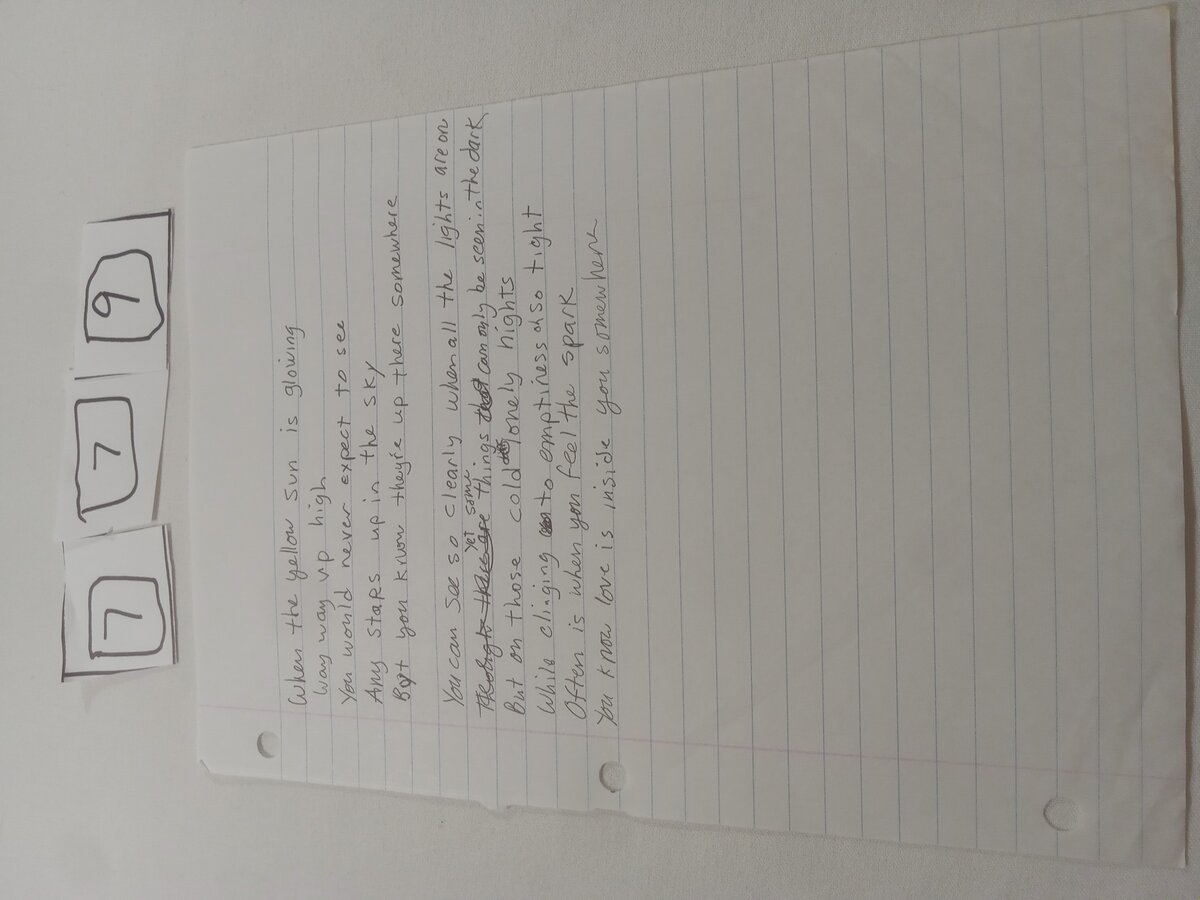 7 7 9
When the yellow sun is glowing
way way up high
You would never expect to see
Any stars up in the sky
But you know they're up there somewhere
You can see so clearly when all the lights are on
yet some
Though there are things that can only be seen in the dark
But on those cold lonely nights
While clinging to emptiness so tight
Often is when you feel the spark
You know love is inside you somewhere